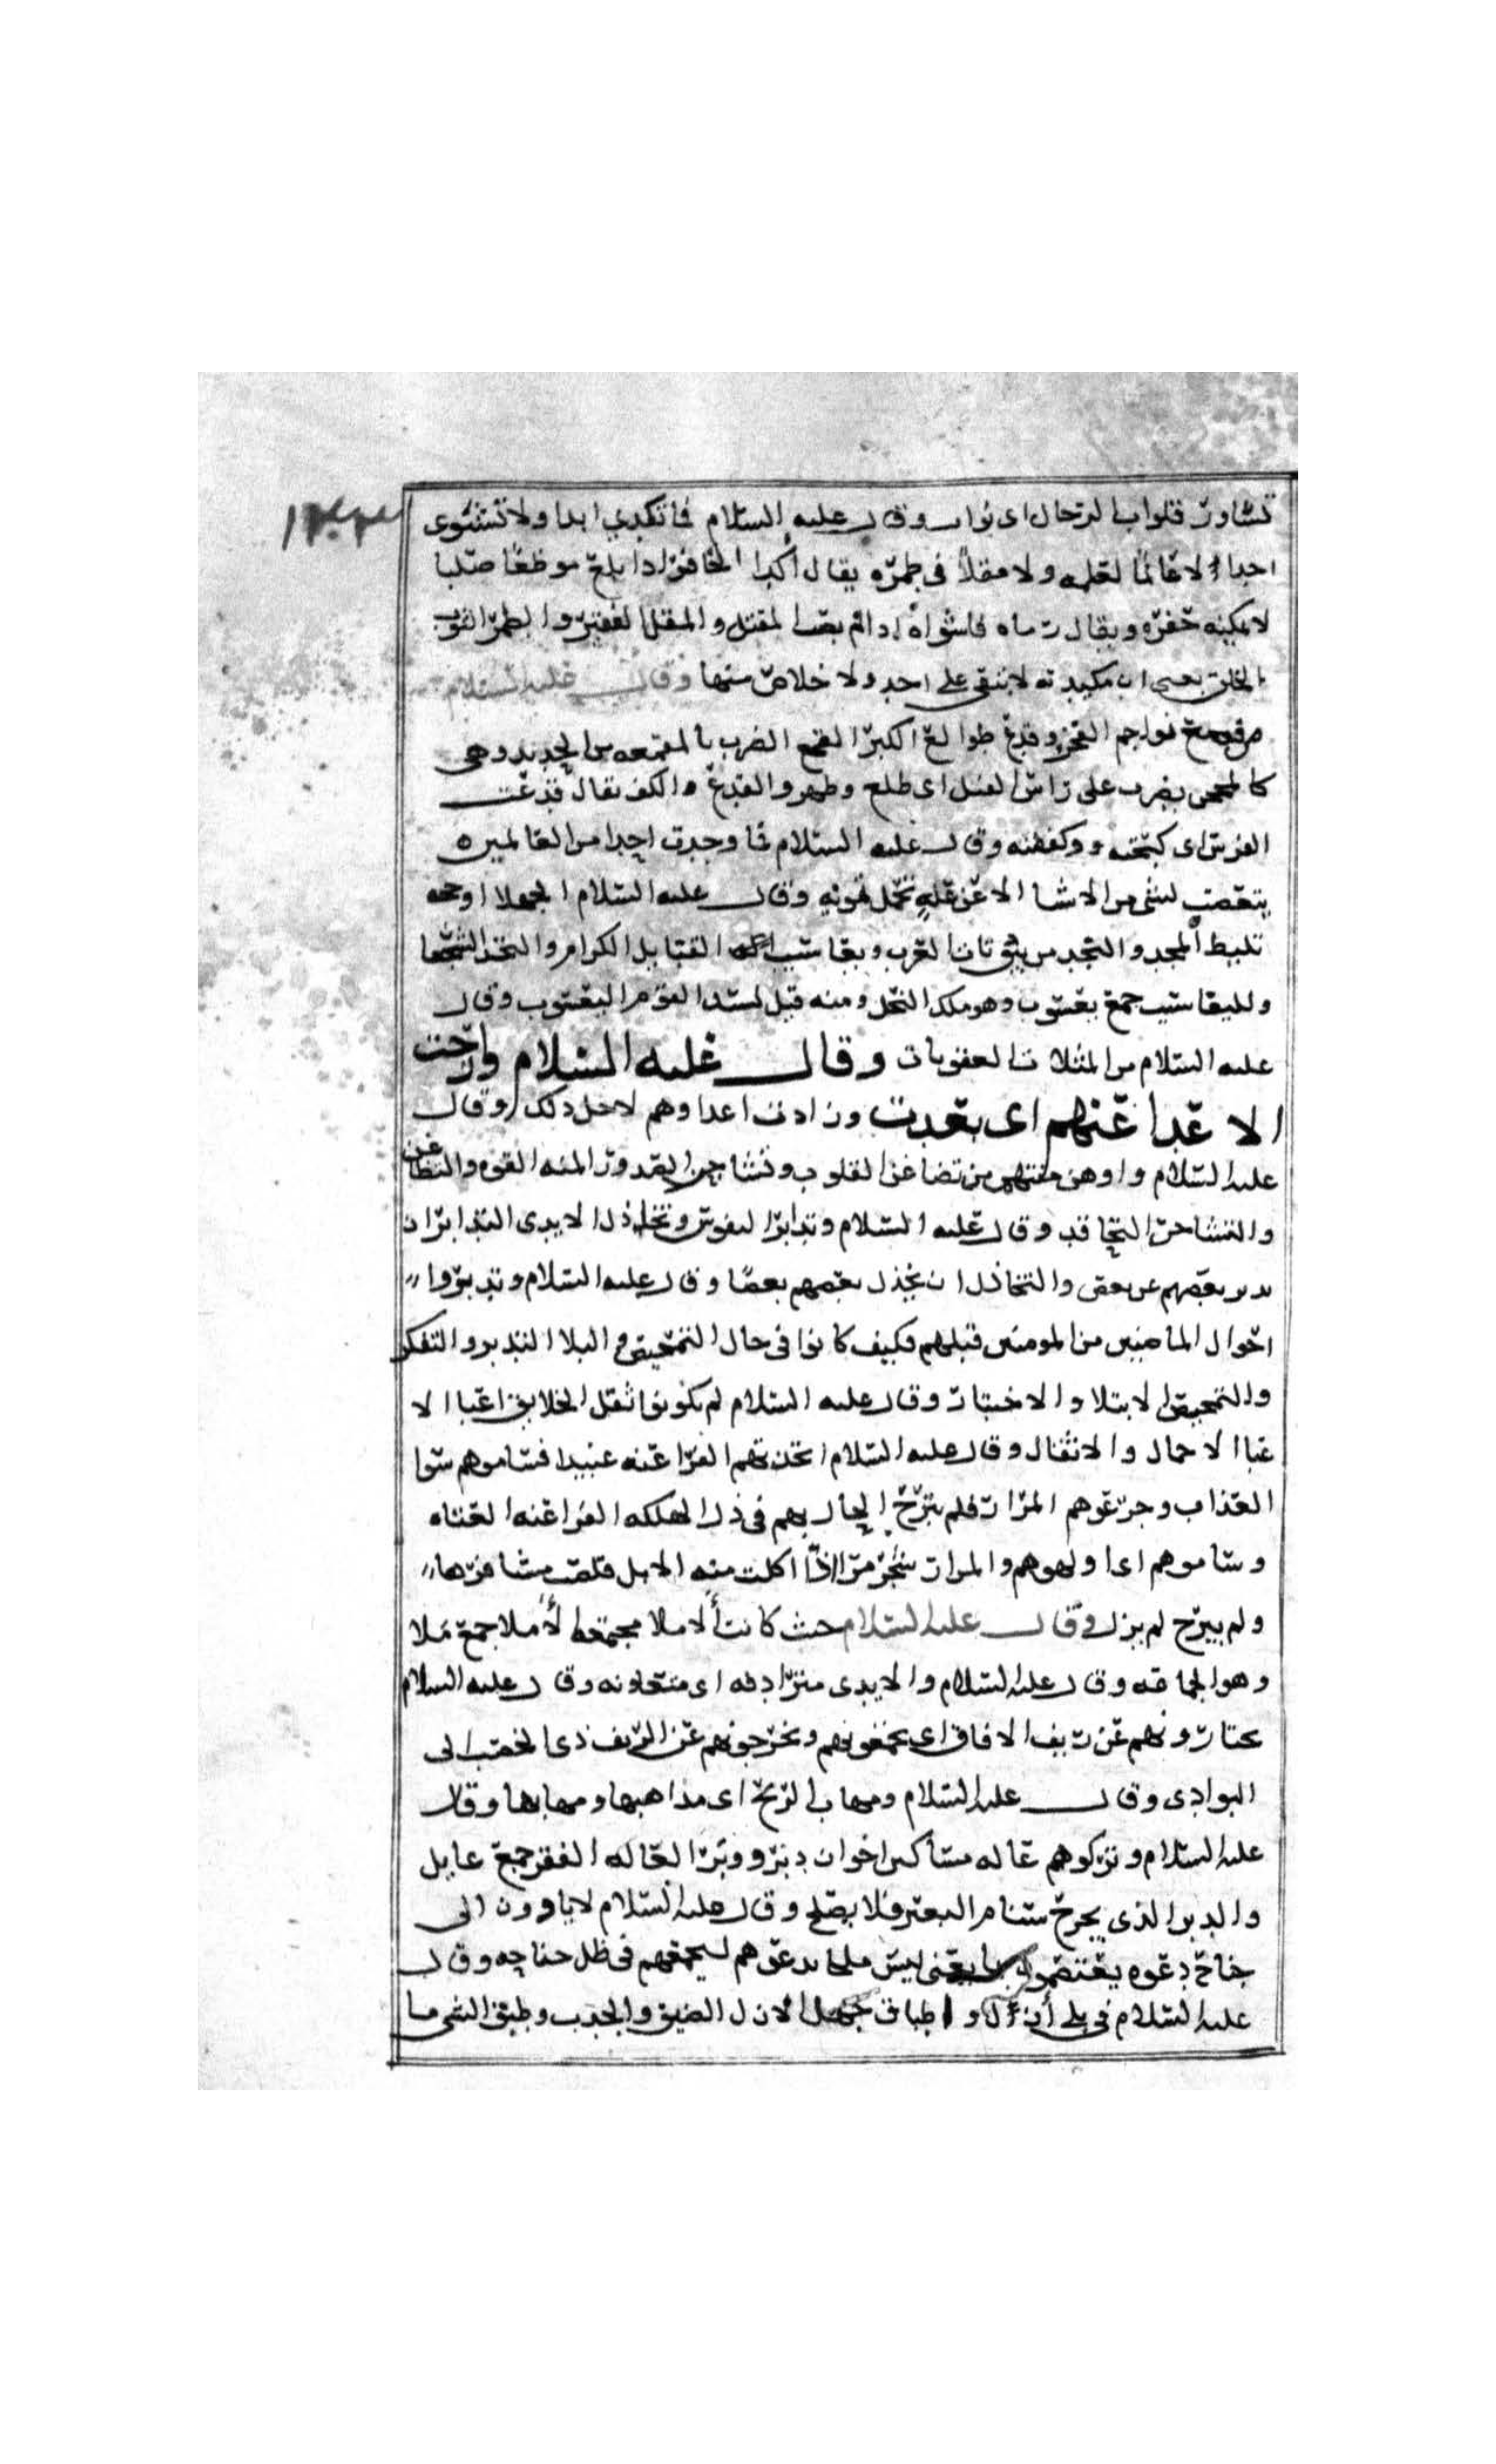 تساور قلوب الرجال اى تواب وقال عليه السلام فما تكدي ابدا ولا تشوى
احدا لا عالما لعلمه ولا مقلا فى طمره يقال أكدا الحافر اذا بلغ موضعا صلبا
لا يمكنه حفره ويقال رماه فاشواه اذا لم يصب المقتل والمقل الفقير والطمر الثوب
الخلق يعنى ان مكيدته لا تبقى على احد ولا خلاص منها وقال عليه السلام
من قمع نواجم الفخر وقدع طوالع الكبر القمع الضرب بالمقمعه من الحديد وهى
كالمحجن يضرب على راس الفيل اى طلع وظهر والقدع والكف يقال قدعت
الفرس اى كبحته وكففته وقال عليه السلام فما وجدت احدا من العالمين
يتعصب لشى من الاشيا الا عن علة تحمل تمويه وقال عليه السلام الجهلا او حجه
تليط المجد والنجد من بيوتات العرب ويعاسيب القبايل الكرام والنجدا الشجعا
ولليعاسيب جمع يعسوب وهو ملك النحل ومنه قيل لسيد القوم اليعسوب وقال
عليه السلام من المثلات العقوبات وقال عليه السلام وازاحت
الاعدا عنهم اى بعدت وزادت اعداوهم لاجل ذلك وقال
عليه السلام واوهن منتهم من تضاغن القلوب وتشاحن الصدور المنه القوه والتضاغن
والتشاحن التحاقد وقال عليه السلام وتدابر النفوس وتخاذل الايدى التدابر ان
يدبر بعضهم عن بعض والتخاذل ان يخذل بعضهم بعضا وقال عليه السلام وتدبروا
احوال الماضيين من المومنين قبلهم فكيف كانوا فى حال التمحيص والبلا التدبر والتفكر
والتمحيص الابتلا والاختبار وقال عليه السلام لم يكونوا اثقل الخلايق اعبا الا
عبا الاحمال والاثقال وقال عليه السلام اتخذتهم الفراعنه عبيدا فساموهم سوا
العذاب وجرعوهم المرار فلم تبرح الحال بهم فى ذل الهلكه الفراعنه العتاه
وساموهم اى اولوهم والمرار شجر مر اذا اكلت منه الابل قلصت مشافرها
ولم يبرح لم يزل وقال عليه السلام حيث كانت الاملا مجتمعه الاملا جمع ملا
وهو الجماعه وقال عليه السلام والايدى مترادفه اى متعاونه وقال عليه السلام
يحتازونهم عن ريف الافاق اى يجمعونهم ويخرجونهم عن الريف ذى الخصب الى
البوادى وقال عليه السلام ومهاب الريح اى مذاهبها ومهابها وقال
عليه السلام وتركوهم عاله مساكين اخوان دبر ووبر العاله الفقر جمع عايل
والدبر الذى يجرح سنام البعير فلا يصلح وقال عليه السلام لا ياوون الى
جناح دعوه يعتصمون بها يعنى ليس ملجا يدعوهم ليجمعهم فى ظل جناحه وقال
عليه السلام فى بلا أزل واطباق جهل الازل الضيق والجدب وطبق الشى ما